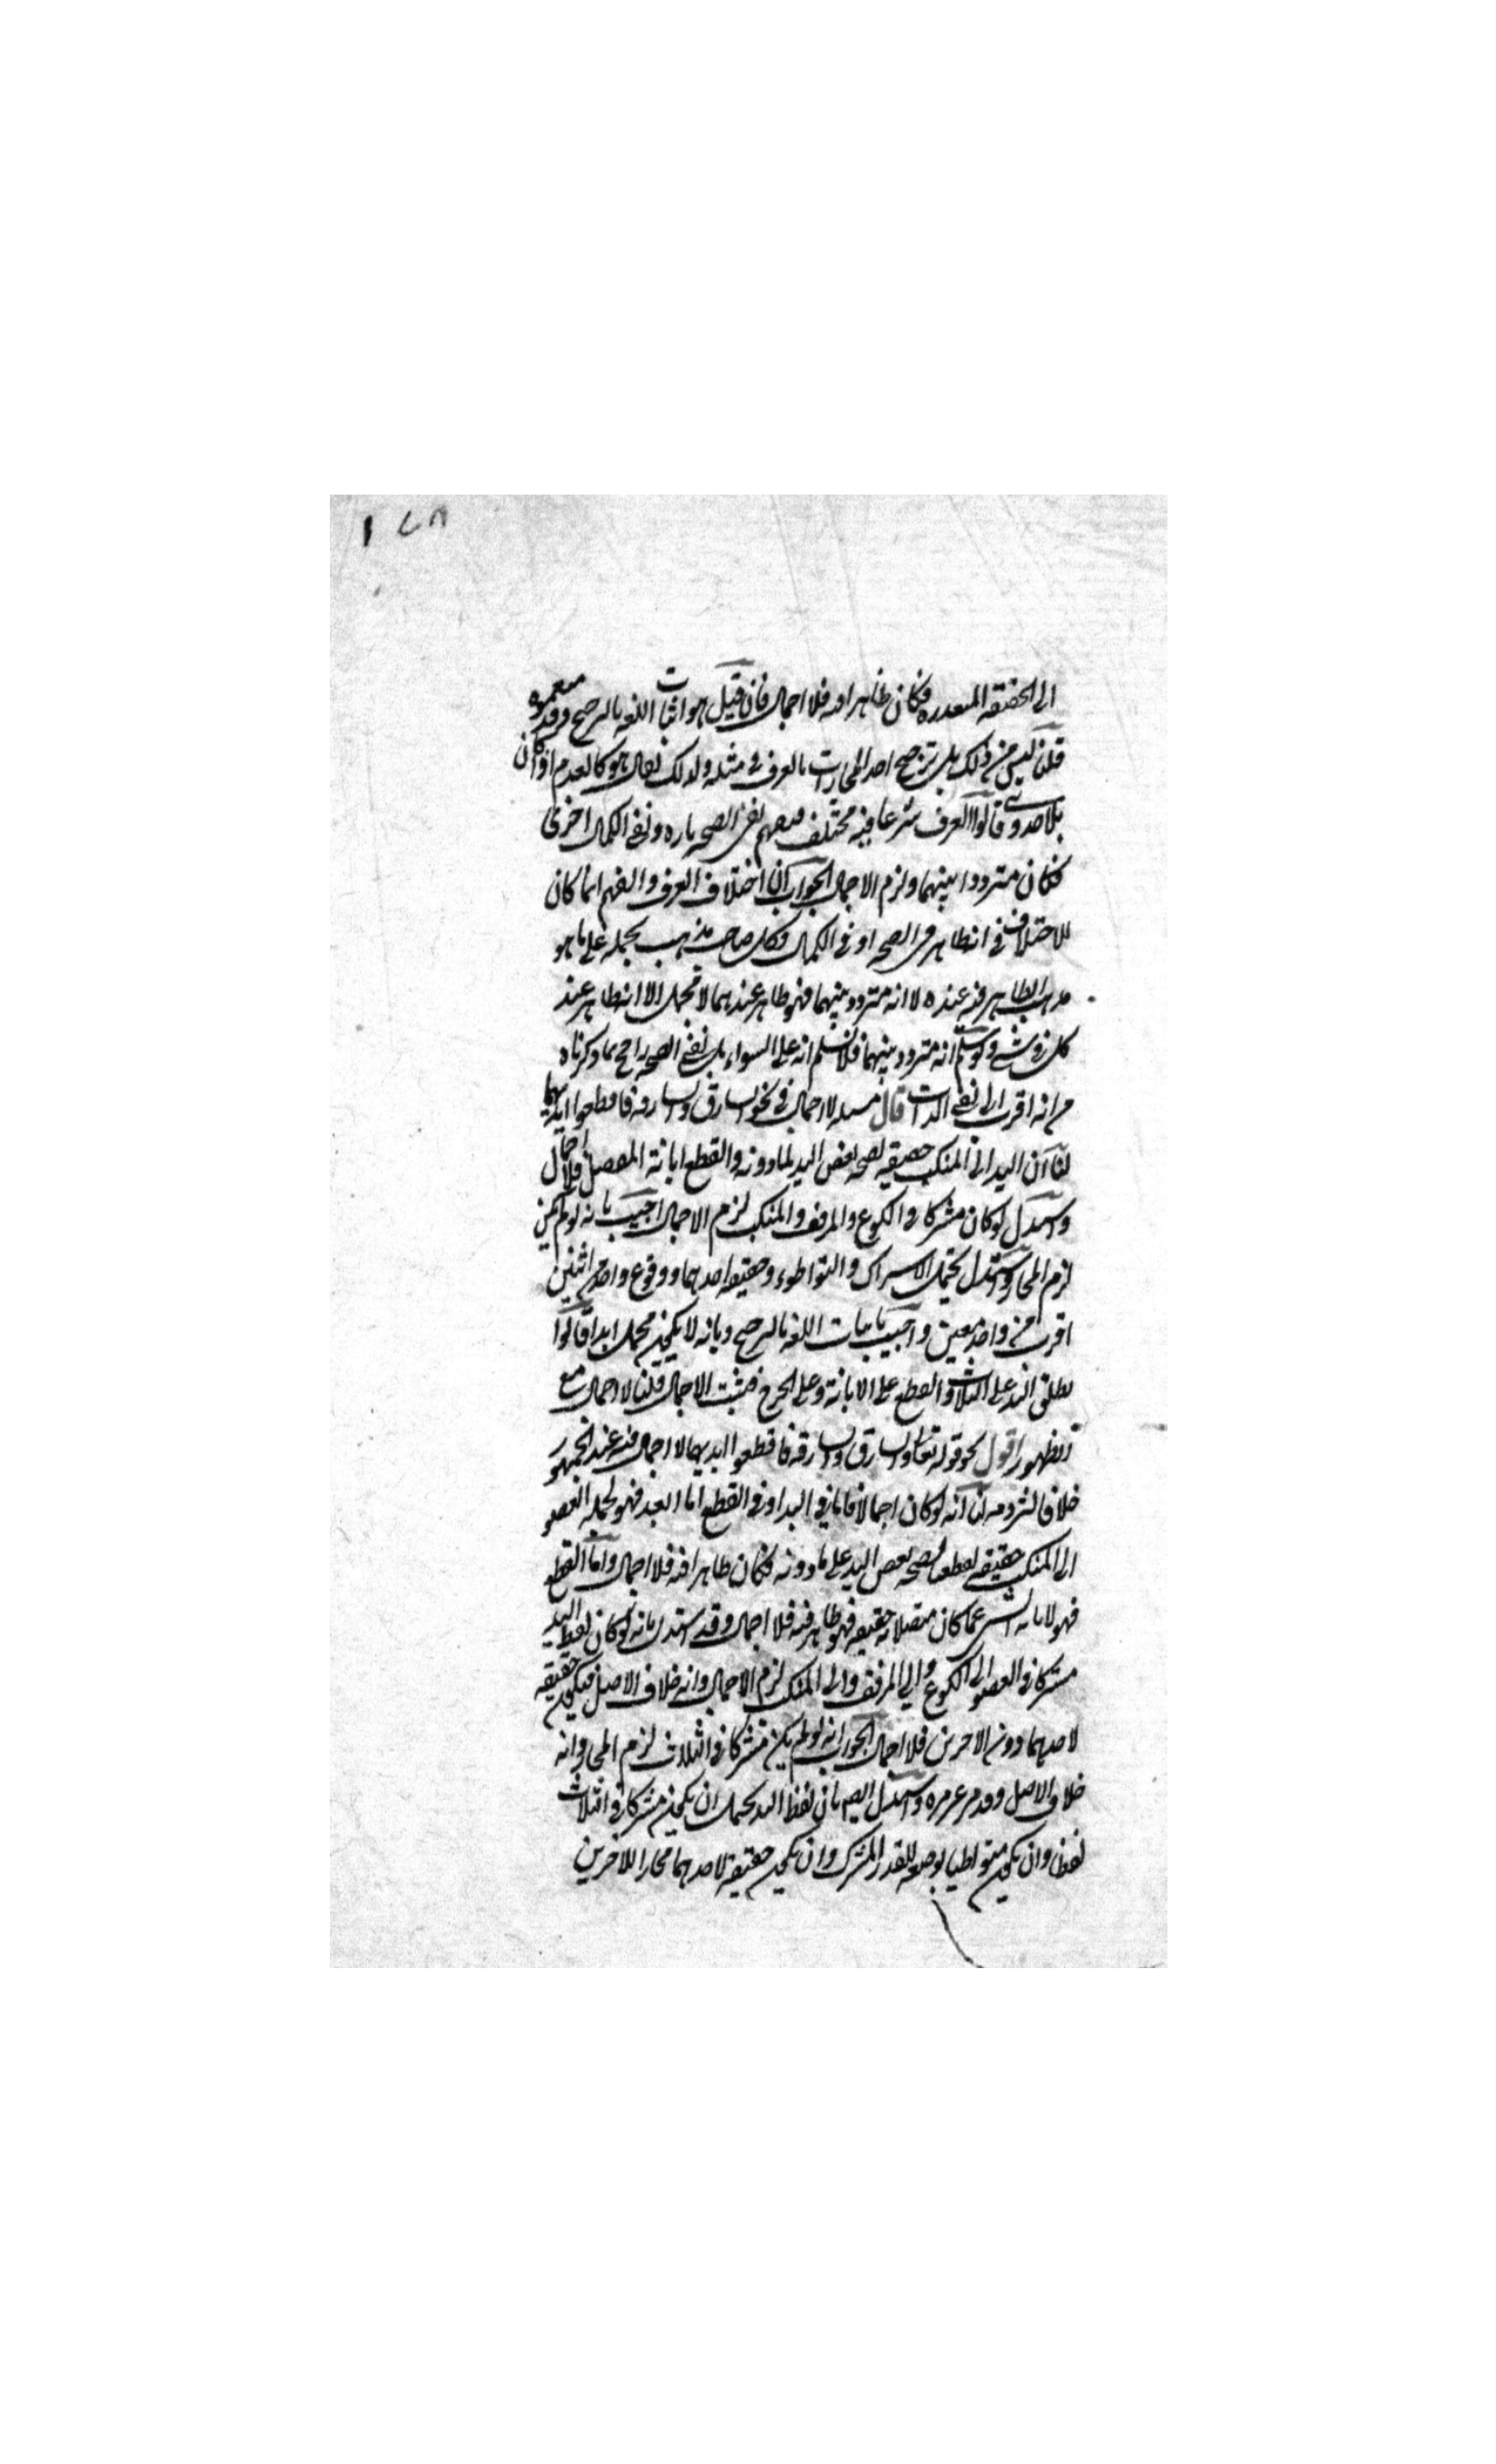 الى الحقيقة المتعذرة فكان ظاهرا فيه فلا اجمال فان قيل هو اثبات اللغة بالترجيح وقد منعتموه
قلنا ليس من ذلك بل ترجيح احد المجازات بالعرف في مثله ولذلك يقال هو كالعدم اذا كان
بلا جدوى قالوا العرف شرعا فيه مختلف فيفهم نفي الصحة تارة ونفي الكمال اخرى
فكان مترددا بينهما ولزم الاجمال الجواب ان اختلاف العرف والفهم انما كان
للاختلاف في انه ظاهر في الصحة او في الكمال فكل صاحب مذهب يحمله على ما هو
الظاهر فيه عنده لا انه متردد بينهما فهو ظاهر عندهما لا مجمل الا انه ظاهر عند
كل في شيء ولو سلم انه متردد بينهما فلا نسلم انه على السواء بل نفي الصحة راجح بما ذكرناه
من انه اقرب الى نفي الذات قال مسئلة لا اجمال في نحو والسارق والسارقة فاقطعوا ايديهما
لنا ان اليد الى المنكب حقيقة لصحة بعض اليد لما دونه والقطع ابانة المتصل فلا اجمال
واستدل لو كان مشتركا في الكوع والمرفق والمنكب لزم الاجمال اجيب بانه لو لم يكن
لزم المجاز واستدل يحتمل الاشتراك والتواطؤ وحقيقة احدهما ووقوع واحد من اثنين
اقرب من واحد معين واجيب باثبات اللغة بالترجيح وبانه لا يكون مجمل ابدا قالوا
يطلق اليد على الثلاث والقطع على الابانة وعلى الجرح فثبت الاجمال قلنا لا اجمال مع
الظهور اقول نحو قوله تعالى والسارق والسارقة فاقطعوا ايديهما لا اجمال فيه عند الجمهور
خلافا لشرذمة لنا انه لو كان اجمالا فاما في اليد او في القطع اما اليد فهو لجملة العضو
الى المنكب حقيقة لقطعنا بصحة بعض اليد على ما دونه فكان ظاهرا فيه فلا اجمال واما القطع
فهو لابانة الشيء عما كان متصلا به حقيقة فهو ظاهر فيه فلا اجمال وقد استدل بانه لو كان لفظ اليد
مشتركا في العضو الى الكوع والى المرفق والى المنكب لزم الاجمال وانه خلاف الاصل فيكون حقيقة
لاحدهما دون الاخرين فلا اجمال الجواب انه لو لم يكن مشتركا في الثلاث لزم المجاز وانه
خلاف الاصل وقد مر غير مرة واستدل ايضا بان لفظ اليد يحتمل ان يكون مشتركا في الثلاث
لفظا وان يكون متواطيا بوضعه للقدر المشترك وان يكون حقيقة لاحدهما مجازا للاخرين